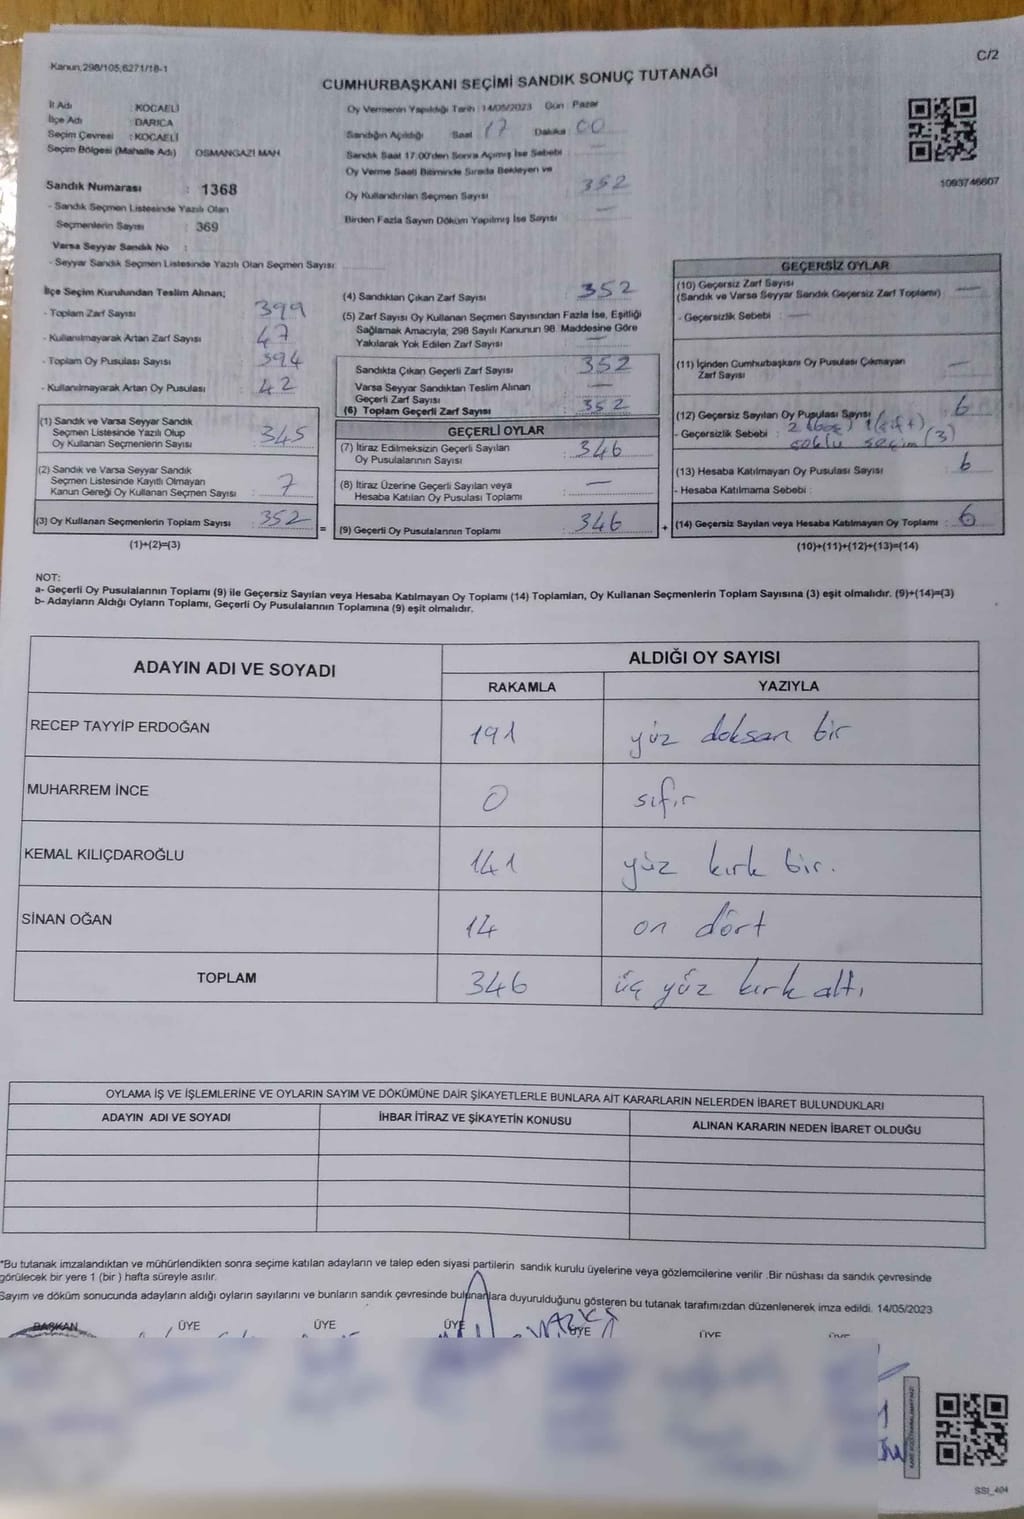 Kanun,298/105,6271/18-1
C/2
CUMHURBAŞKANI SEÇİMİ SANDIK SONUÇ TUTANAĞI
İl Adı : KOCAELİ
İlçe Adı : DARICA
Seçim Çevresi : KOCAELİ
Seçim Bölgesi (Mahalle Adı) OSMANGAZİ MAH
Sandık Numarası : 1368
- Sandık Seçmen Listesinde Yazılı Olan
Seçmenlerin Sayısı : 369
Varsa Seyyar Sandık No :
- Seyyar Sandık Seçmen Listesinde Yazılı Olan Seçmen Sayısı
Oy Vermenin Yapıldığı Tarih : 14/05/2023 Gün : Pazar
Sandığın Açıldığı Saat 17 Dakika : 00
Sandık Saat 17:00'den Sonra Açımış İse Sebebi : —
Oy Verme Saati Bitiminde Sırada Bekleyen ve
Oy Kullandırılan Seçmen Sayısı 352
Birden Fazla Sayım Döküm Yapılmış İse Sayısı —
1093746607
İlçe Seçim Kurulundan Teslim Alınan;
- Toplam Zarf Sayısı : 399
- Kullanılmayarak Artan Zarf Sayısı : 47
- Toplam Oy Pusulası Sayısı : 394
- Kullanılmayarak Artan Oy Pusulası : 42
(1) Sandık ve Varsa Seyyar Sandık
Seçmen Listesinde Yazılı Olup
Oy Kullanan Seçmenlerin Sayısı : 345
(2) Sandık ve Varsa Seyyar Sandık
Seçmen Listesinde Kayıtlı Olmayan
Kanun Gereği Oy Kullanan Seçmen Sayısı : 7
(3) Oy Kullanan Seçmenlerin Toplam Sayısı : 352 =
(1)+(2)=(3)
(4) Sandıktan Çıkan Zarf Sayısı : 352
(5) Zarf Sayısı Oy Kullanan Seçmen Sayısından Fazla İse, Eşitliği
Sağlamak Amacıyla, 298 Sayılı Kanunun 98. Maddesine Göre
Yakılarak Yok Edilen Zarf Sayısı : —
Sandıkta Çıkan Geçerli Zarf Sayısı : 352
Varsa Seyyar Sandıktan Teslim Alınan
Geçerli Zarf Sayısı : —
(6) Toplam Geçerli Zarf Sayısı : 352
GEÇERLİ OYLAR
(7) İtiraz Edilmeksizin Geçerli Sayılan
Oy Pusulalarının Sayısı : 346
(8) İtiraz Üzerine Geçerli Sayılan veya
Hesaba Katılan Oy Pusulası Toplamı : —
(9) Geçerli Oy Pusulalarının Toplamı : 346 +
GEÇERSİZ OYLAR
(10) Geçersiz Zarf Sayısı
(Sandık ve Varsa Seyyar Sandık Geçersiz Zarf Toplamı) —
- Geçersizlik Sebebi : —
(11) İçinden Cumhurbaşkanı Oy Pusulası Çıkmayan
Zarf Sayısı —
(12) Geçersiz Sayılan Oy Pupulası Sayısı : 6
- Geçersizlik Sebebi : 2 (boş) 1 (çift)
çoklu seçim (3)
(13) Hesaba Katılmayan Oy Pusulası Sayısı : 6
- Hesaba Katılmama Sebebi :
(14) Geçersiz Sayılan veya Hesaba Katılmayan Oy Toplamı : 6
(10)+(11)+(12)+(13)=(14)
NOT:
a- Geçerli Oy Pusulalarının Toplamı (9) ile Geçersiz Sayılan veya Hesaba Katılmayan Oy Toplamı (14) Toplamları, Oy Kullanan Seçmenlerin Toplam Sayısına (3) eşit olmalıdır. (9)+(14)=(3)
b- Adayların Aldığı Oyların Toplamı, Geçerli Oy Pusulalarının Toplamına (9) eşit olmalıdır.
ADAYIN ADI VE SOYADI
ALDIĞI OY SAYISI
RAKAMLA YAZIYLA
RECEP TAYYİP ERDOĞAN 191 yüz doksan bir
MUHARREM İNCE 0 sıfır
KEMAL KILIÇDAROĞLU 141 yüz kırk bir.
SİNAN OĞAN 14 on dört
TOPLAM 346 üç yüz kırk altı
OYLAMA İŞ VE İŞLEMLERİNE VE OYLARIN SAYIM VE DÖKÜMÜNE DAİR ŞİKAYETLERLE BUNLARA AİT KARARLARIN NELERDEN İBARET BULUNDUKLARI
ADAYIN ADI VE SOYADI İHBAR İTİRAZ VE ŞİKAYETİN KONUSU ALINAN KARARIN NEDEN İBARET OLDUĞU
*Bu tutanak imzalandıktan ve mühürlendikten sonra seçime katılan adayların ve talep eden siyasi partilerin sandık kurulu üyelerine veya gözlemcilerine verilir .Bir nüshası da sandık çevresinde
görülecek bir yere 1 (bir ) hafta süreyle asılır.
Sayım ve döküm sonucunda adayların aldığı oyların sayılarını ve bunların sandık çevresinde bulunanlara duyurulduğunu gösteren bu tutanak tarafımızdan düzenlenerek imza edildi. 14/05/2023
BAŞKAN ÜYE ÜYE ÜYE ÜYE ÜYE ÜYE
SSI_404